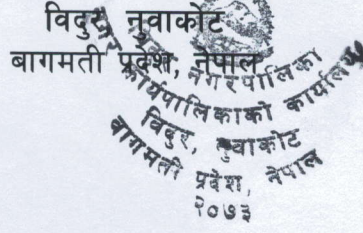 विदुर, नुवाकोट
बागमती प्रदेश, नेपाल
नगरपालिका
कार्यपालिकाको कार्यालय
विदुर, नुवाकोट
बागमती प्रदेश, नेपाल
२०७३